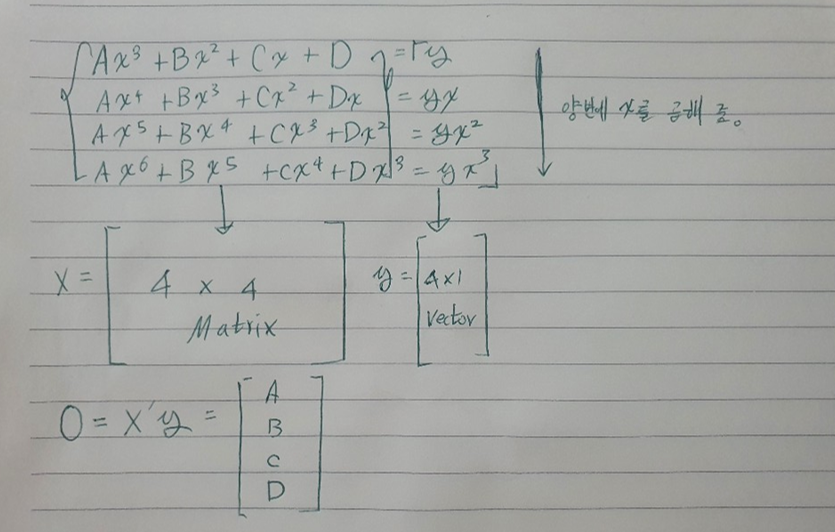 Ax³ + Bx² + Cx + D = y
Ax⁴ + Bx³ + Cx² + Dx = yx
Ax⁵ + Bx⁴ + Cx³ + Dx² = yx²
Ax⁶ + Bx⁵ + Cx⁴ + Dx³ = yx³
양변에 x를 곱해 줌。
X = [ 4 x 4
Matrix ]
y = [ 4x1
vector ]
O = X'y = [ A
B
C
D ]